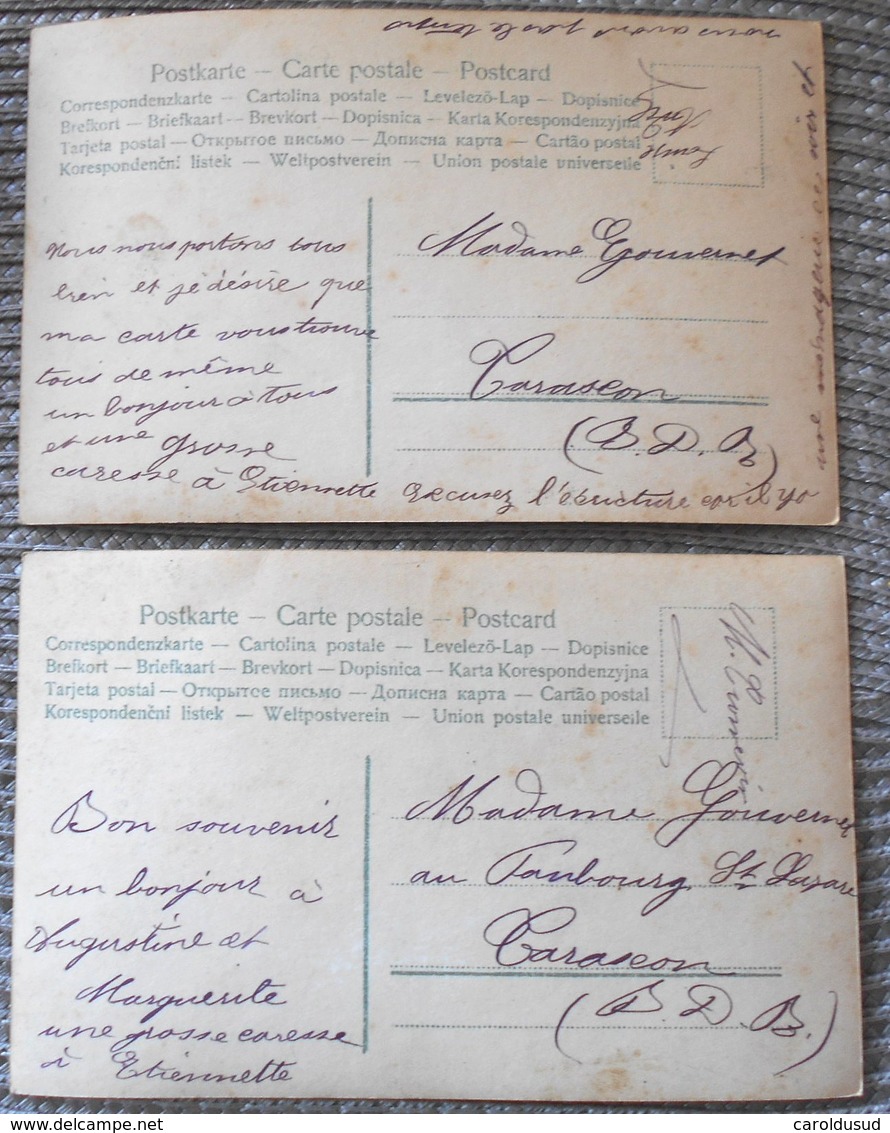 nous avons pas le temps
Postkarte — Carte postale — Postcard
Correspondenzkarte — Cartolina postale — Levelezō-Lap — Dopisnice
Brefkort — Briefkaart — Brevkort — Dopisnica — Karta Korespondenzyjna
Tarjeta postal — Открытое письмо — Дописна карта — Cartão postal
Korespondenční listek — Weltpostverein — Union postale universelle
Nous nous portons tous
bien et je désire que
ma carte vous trouve
tous de même
un bonjour à tous
et une grosse
caresse à Etiennette Excusez l'écriture car il y a
une ce soir et
Madame Gouvernet
Tarascon
(B. D. R)
Postkarte — Carte postale — Postcard
Correspondenzkarte — Cartolina postale — Levelezō-Lap — Dopisnice
Brefkort — Briefkaart — Brevkort — Dopisnica — Karta Korespondenzyjna
Tarjeta postal — Открытое письмо — Дописна карта — Cartão postal
Korespondenční listek — Weltpostverein — Union postale universelle
Bon souvenir
un bonjour à
Augustine et
Marguerite
une grosse caresse
à Etiennette
Madame Gouvernet
au Faubourg St Lazare
Tarascon
(B. D. R.)
caroldusud